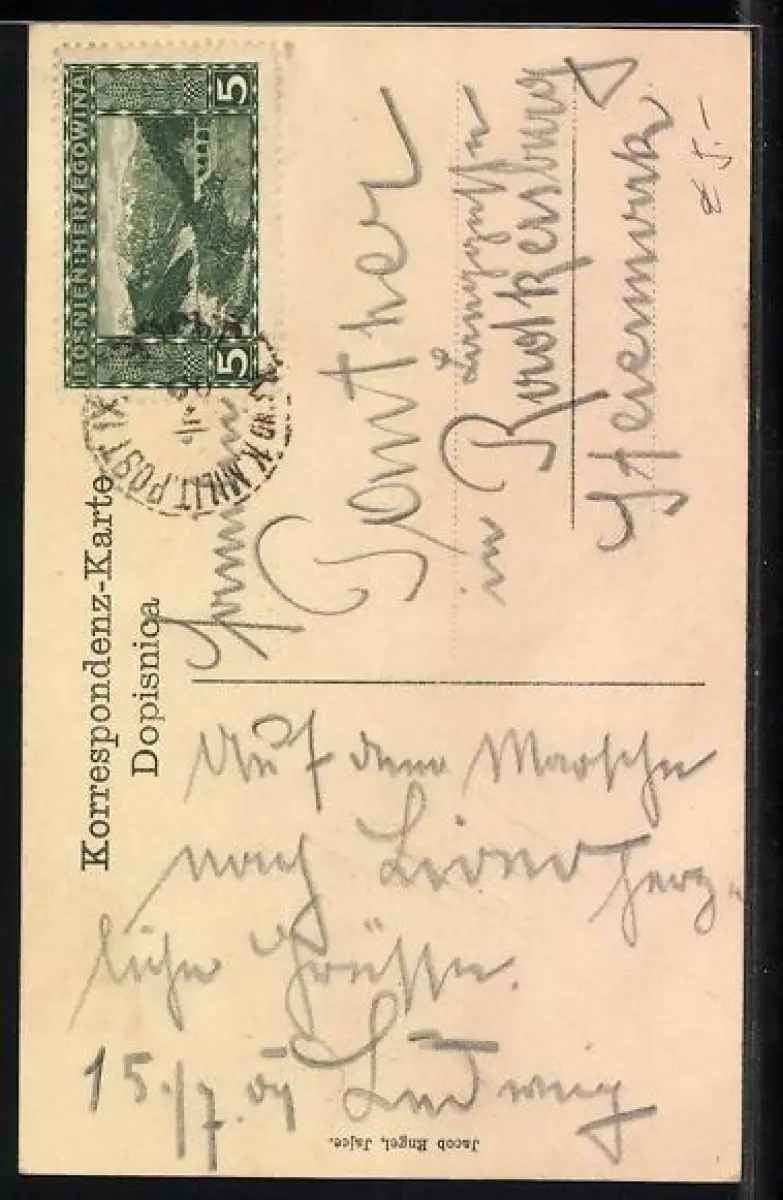 BOSNIEN-HERZEGOWINA
5
5
K. MILIT. POST XI
Korrespondenz-Karte
Dopisnica
Günther
in Radkersburg
Steiermark
Auf dem Marsche
nach Livno herz-
liche Grüsse.
15./7. 09 Ludwig
Jacob Engel, Jajce.
5.-